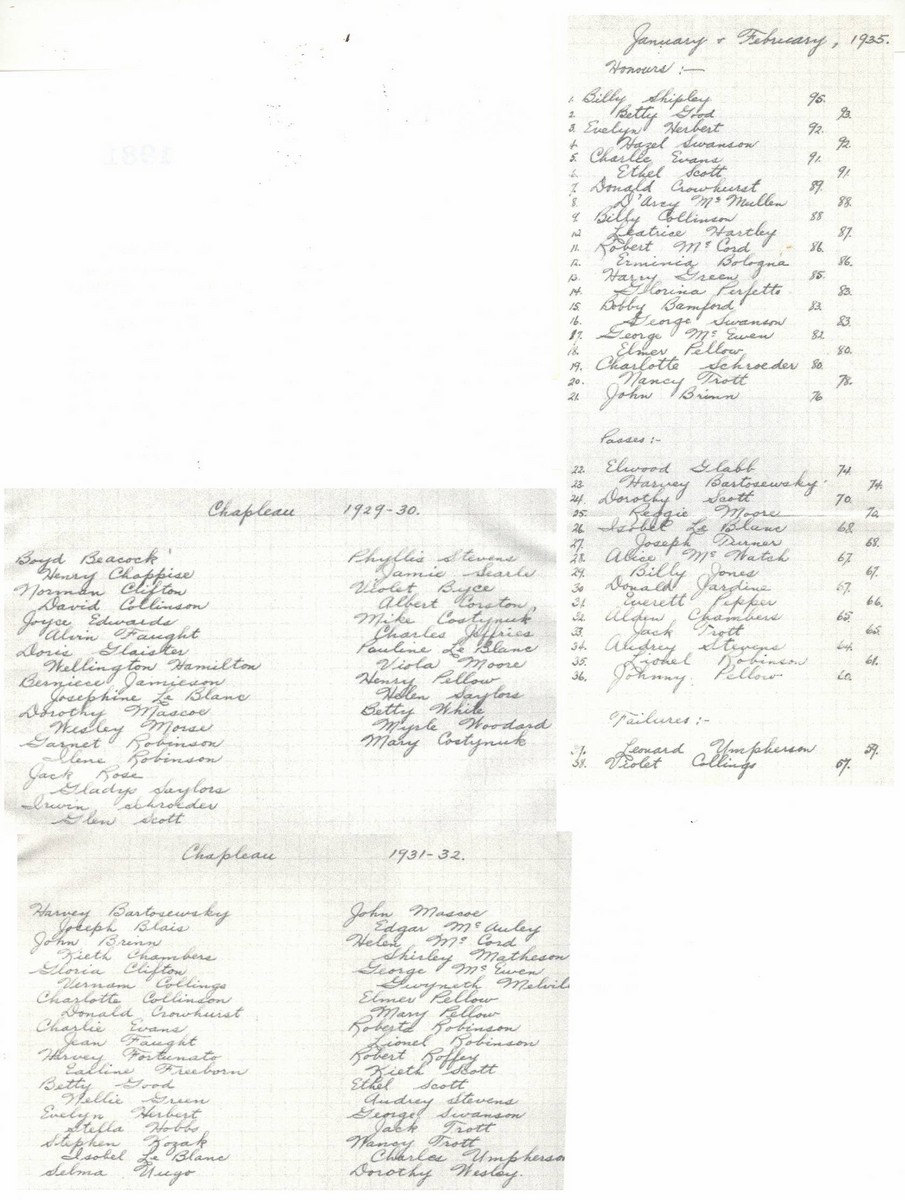 January & February, 1935.
Honours :-
1. Billy Shipley 95.
2. Betty Good 93.
3. Evelyn Herbert 92.
4. Hazel Swanson 92.
5. Charlie Evans 91.
6. Ethel Scott 91.
7. Donald Crowhurst 89.
8. D'Arcy Mc Mullen 88.
9. Billy Collinson 88
10. Leatrice Hartley 87.
11. Robert Mc Cord 86.
12. Erminia Bologna 86.
13. Harry Green 85.
14. Glorina Perfetto 83.
15. Bobby Bamford 83.
16. George Swanson 83.
17. George Mc Ewen 82
18. Elmer Pellow 80.
19. Charlotte Schroeder 80.
20. Nancy Trott 78.
21. John Brinn 76
Passes :-
22. Elwood Glabb 74.
23. Harvey Bartosewsky 74.
24. Dorothy Scott 70.
25. Reggie Moore 70.
26 Isobel Le Blanc 68.
27. Joseph Turner 68.
28. Alice Mc Watch 67.
29. Billy Jones 67.
30 Donald Jardine 67.
31. Everett Pepper 66.
32. Alden Chambers 65.
33. Jack Trott 65.
34. Audrey Stevens 64.
35. Lionel Robinson 61.
36. Johnny Pellow 60.
Failures :-
37. Leonard Umpherson 59.
38. Violet Collings 57.
Chapleau 1929-30.
Boyd Beacock
Henry Chappise
Norman Clifton
David Collinson
Joyce Edwards
Alvin Faught
Doris Glaister
Wellington Hamilton
Berniece Jamieson
Josephine Le Blanc
Dorothy Mascoe
Wesley Morse
Garnet Robinson
Ilene Robinson
Jack Rose
Gladys Saylors
Irwin Schroeder
Glen Scott
Phyllis Stevens
Jamie Searle
Violet Byce
Albert Corston
Mike Costynuk
Charles Jeffries
Pauline Le Blanc
Viola Moore
Henry Pellow
Helen Saylors
Betty White
Myrle Woodard
Mary Costynuk
Chapleau 1931-32.
Harvey Bartosewsky
Joseph Blais
John Brinn
Kieth Chambers
Gloria Clifton
Vernam Collings
Charlotte Collinson
Donald Crowhurst
Charlie Evans
Jean Faught
Harvey Fortunato
Earline Freeborn
Betty Good
Nellie Green
Evelyn Herbert
Stella Hobbs
Stephen Kozak
Isobel Le Blanc
Selma Nugo
John Mascoe
Edgar Mc Auley
Helen Mc Cord
Shirley Matheson
George Mc Ewen
Gwyneth Melvil
Elmer Pellow
Mary Pellow
Roberta Robinson
Lionel Robinson
Robert Roffey
Kieth Scott
Ethel Scott
Audrey Stevens
George Swanson
Jack Trott
Nancy Trott
Charles Umpherson
Dorothy Wesley.